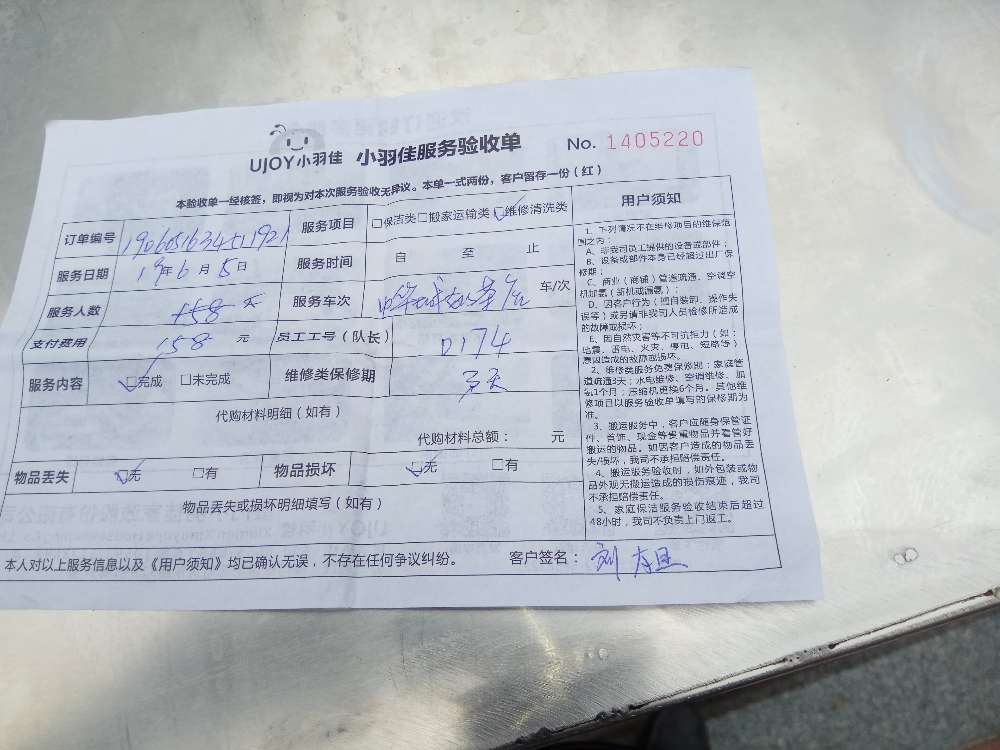 UJOY小羽佳 小羽佳服务验收单 No. 1405220
本验收单一经核签，即视为对本次服务验收无异议。本单一式两份，客户留存一份（红）
订单编号 服务项目 □保洁类□搬家运输类□维修清洗类
服务日期 19年6月5日 服务时间 自 至 止
服务人数 158 服务车次 车/次
支付费用 158 元 员工工号（队长） 0174
服务内容 □完成 □未完成 维修类保修期 3天
代购材料明细（如有）
代购材料总额： 元
物品丢失 □无 □有 物品损坏 □无 □有
物品丢失或损坏明细填写（如有）
本人对以上服务信息以及《用户须知》均已确认无误，不存在任何争议纠纷。 客户签名：刘
用户须知
1、下列情况不在维修项目的维保范
围之内：
A、非我司员工提供的设备或部件；
B、设备或部件本身已经超过出厂保
修期；
C、商业（商铺）管道疏通、空调空
机加氟（新机或漏氟）；
D、因客户行为（擅自装卸、操作失
误等）或另请非我司人员检修所造成
的故障或损坏；
E、因自然灾害等不可抗拒力（如：
地震、雷电、火灾、停电、短路等）
原因造成的故障或损坏。
2、维修类服务免费保修期：家庭管
道疏通3天；水电维修、空调维修、加
氟1个月；压缩机更换6个月。其他维
修项目以服务验收单填写的保修期为
准。
3、搬运服务中，客户应随身保管证
件、首饰、现金等贵重物品并看管好
搬运的物品。如因客户造成的物品丢
失/损坏，我司不承担赔偿责任。
4、搬运服务验收时，如外包装或物
品外观无搬运造成的损伤痕迹，我司
不承担赔偿责任。
5、家庭保洁服务验收结束后超过
48小时，我司不负责上门返工。